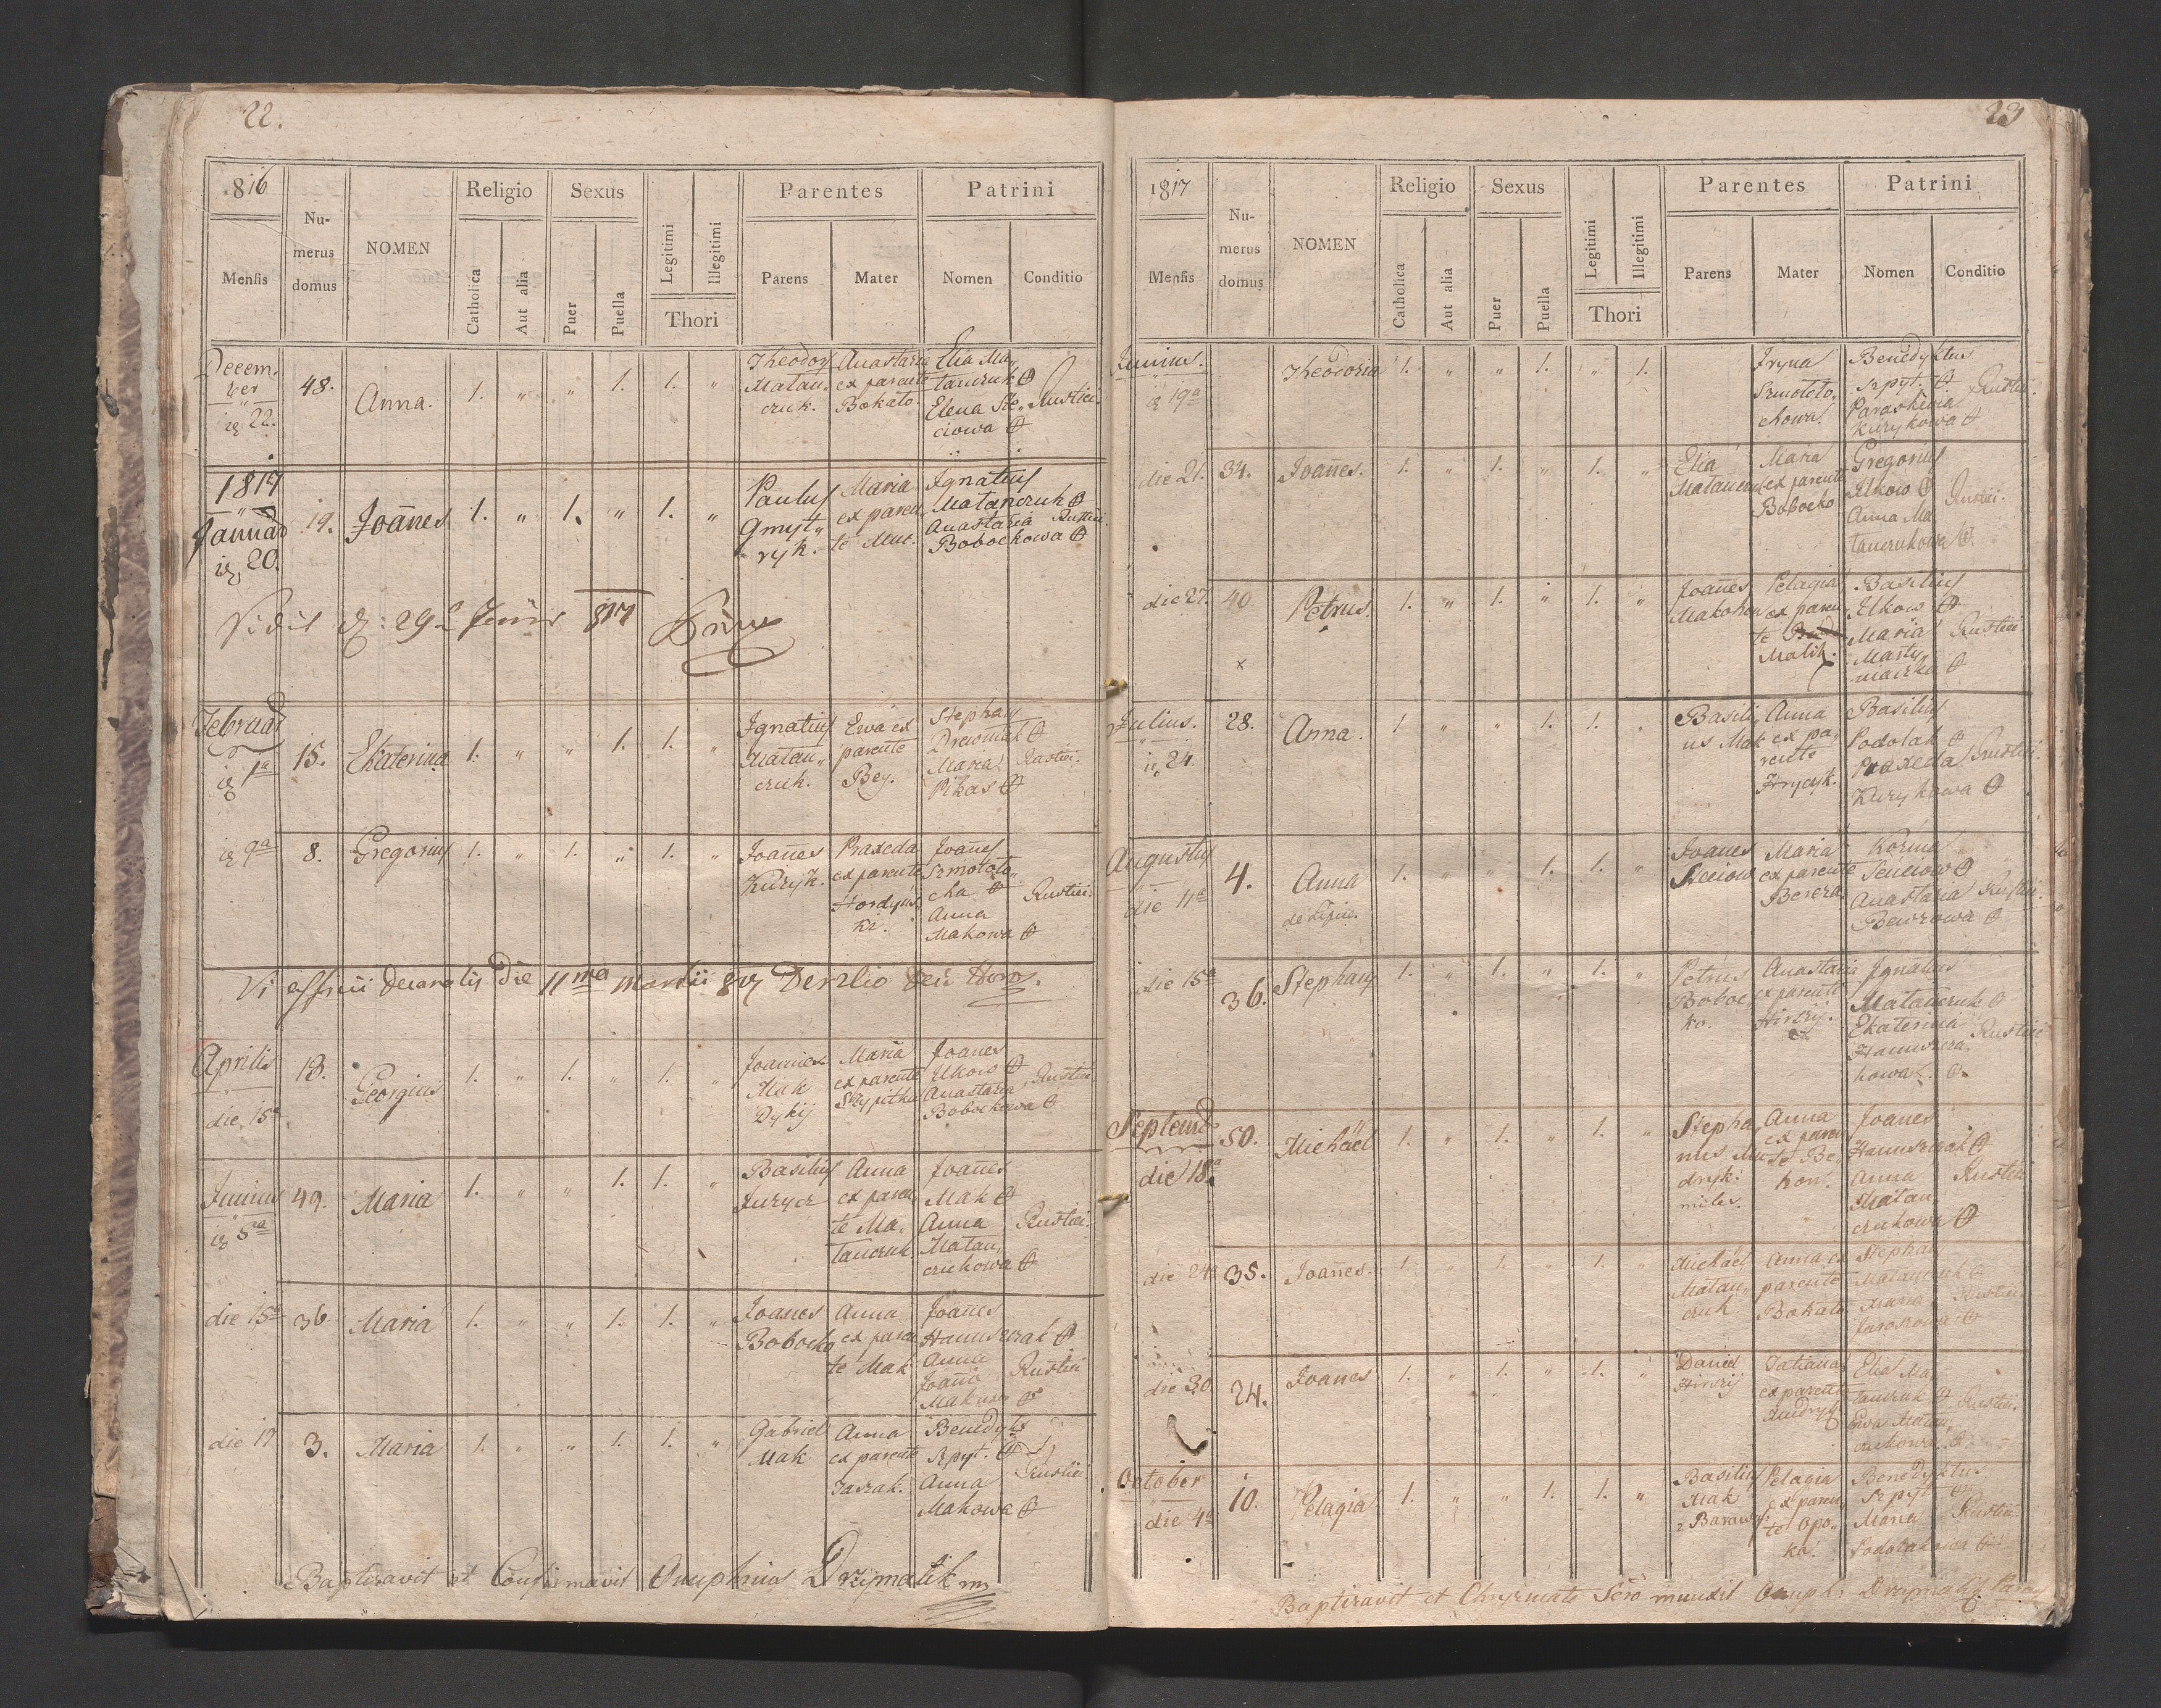 22.
816
Mensis
Nu-
merus
domus
NOMEN
Religio
Catholica
Aut alia
Sexus
Puer
Puella
Legitimi
Illegitimi
Thori
Parentes
Parens
Mater
Patrini
Nomen
Conditio
Decem.
ber
22.
48.
Anna.
1. " " 1. 1. "
Theodor
Matan,
czuk.
Anastazia
ex parente
Bokało.
Elia Ma,
tanczuk
Elena Ste,
ciowa
Rustici.
1817
Januar
20.
19.
Joañes
1. " 1. " 1. "
Paulus
Gmyt,
ryk.
Maria
ex paren,
te Muc.
Ignatius
Matanczuk
Anastazia
Bobockowa
Rustici.
Vidit d: 29 Junii 817
Februar
1a
15.
Ekaterina
1. " " 1. 1. "
Ignatius
Matan,
czuk.
Ewa ex
parente
Bey.
Stephan
Drewniak
Maria
Pikas
Rustici.
9a
8.
Gregorius
1. " 1. " 1. "
Joañes
Kuryk.
Praxeda
ex parente
Hordyns
ki.
Joañes
Szmołoto,
cha
Anna
Makowa
Rustici.
Vi officii Decanalis die 11ma Martii 817
Aprilis
die 15a
13.
Georgius
1. " 1. " 1. "
Joannes
Mak
Dykij
Maria
ex parente
Joanes
Ilkow
Anastazia
Bobockowa
Rustici
Junius
5a
49.
Maria
1. " " 1. 1. "
Basilius
Jurycz
Anna
ex paren,
te Ma,
tanczuk.
Joañes
Mak
Anna
Matan,
czukowa
Rustici.
die 15a
36
Maria
1. " " 1. 1. "
Joanes
Bobocko
Anna
ex paren
te Mak
Joañes
Hanuszczak
Anna
Joañis
Rustici
die 17
3.
Maria
1. " " 1. 1. "
Gabriel
Mak
Anna
ex parente
Jaszak.
Benedykt
Szpyt.
Anna
Makowa
Rustici
Baptisavit et Confirmavit Onuphrius Drzymalik
23
1817
Mensis
Nu-
merus
domus
NOMEN
Religio
Catholica
Aut alia
Sexus
Puer
Puella
Legitimi
Illegitimi
Thori
Parentes
Parens
Mater
Patrini
Nomen
Conditio
Junius.
19a
Theodoria
1. " " 1. " 1.
Iryna
Szmołoto,
chowa.
Benedyktus
Szpyt.
Paraskewia
Kurykowa
Rustici.
die 21.
34.
Joañes.
1. " 1. " 1. "
Elia
Matanczuk
Maria
ex parente
Bobocko
Gregorius
Ilkow
Anna Ma
tanczukowa
Rustici.
die 27.
40.
Petrus.
1. " 1. " 1. "
Joañes
Pelagia
ex paren,
te
Malik.
Basilius
Ilkow
Maria
Marty
Rustici
x
Julius.
24.
28.
Anna.
1 " " 1. 1. "
Basili,
us Mak
Anna
ex pa,
rente
Hrycyk.
Basilius
Podolak
Praxeda
Kurykowa
Rustici.
Augustus
die 11a
4.
Anna
de Lipie.
1. " " 1. 1. "
Joanes
Steciow
Maria
ex parente
Bereza
Kozma
Seńciow
Anastazia
Rustici
die 15a
36.
Stephanus
1. " 1. " 1. "
Petrus
Boboc
ko.
Anastazia
ex parente
Hirszij.
Ignatius
Matanczuk
Ekaterina
Hanuszcza
kowa
Rustici
Septemb
die 18a
50.
Michäel
1. " 1. " 1. "
Stepha,
nus Mu
dryk.
miles.
Anna
ex paren
te Be,
kow.
Joanes
Hanuszczak
Anna
Matan
czukowa
Rustici
die 24
35.
Joañes.
1. " 1. " 1. "
Michael
Matan,
czuk
Anna ex
parente
Bokało
Stephan
Matanczuk
Maria
Rustici
die 30.
24.
Joanes
1. " 1. " 1. "
Daniel
Hirszij
Tatiana
ex parente
Mudryk
Elia Ma
tanczuk
Ewa Matan,
czukowa
Rustici.
October
die 4a
10.
Pelagia
1. " " 1. 1. "
Basilius
Mak
Pelagia
ex paren
te Opo,
ka.
Benedyktus
Szpyt
Maria
Podolakowa
Rustici.
Baptisavit et Chrysmate Scro munxit Onuph: